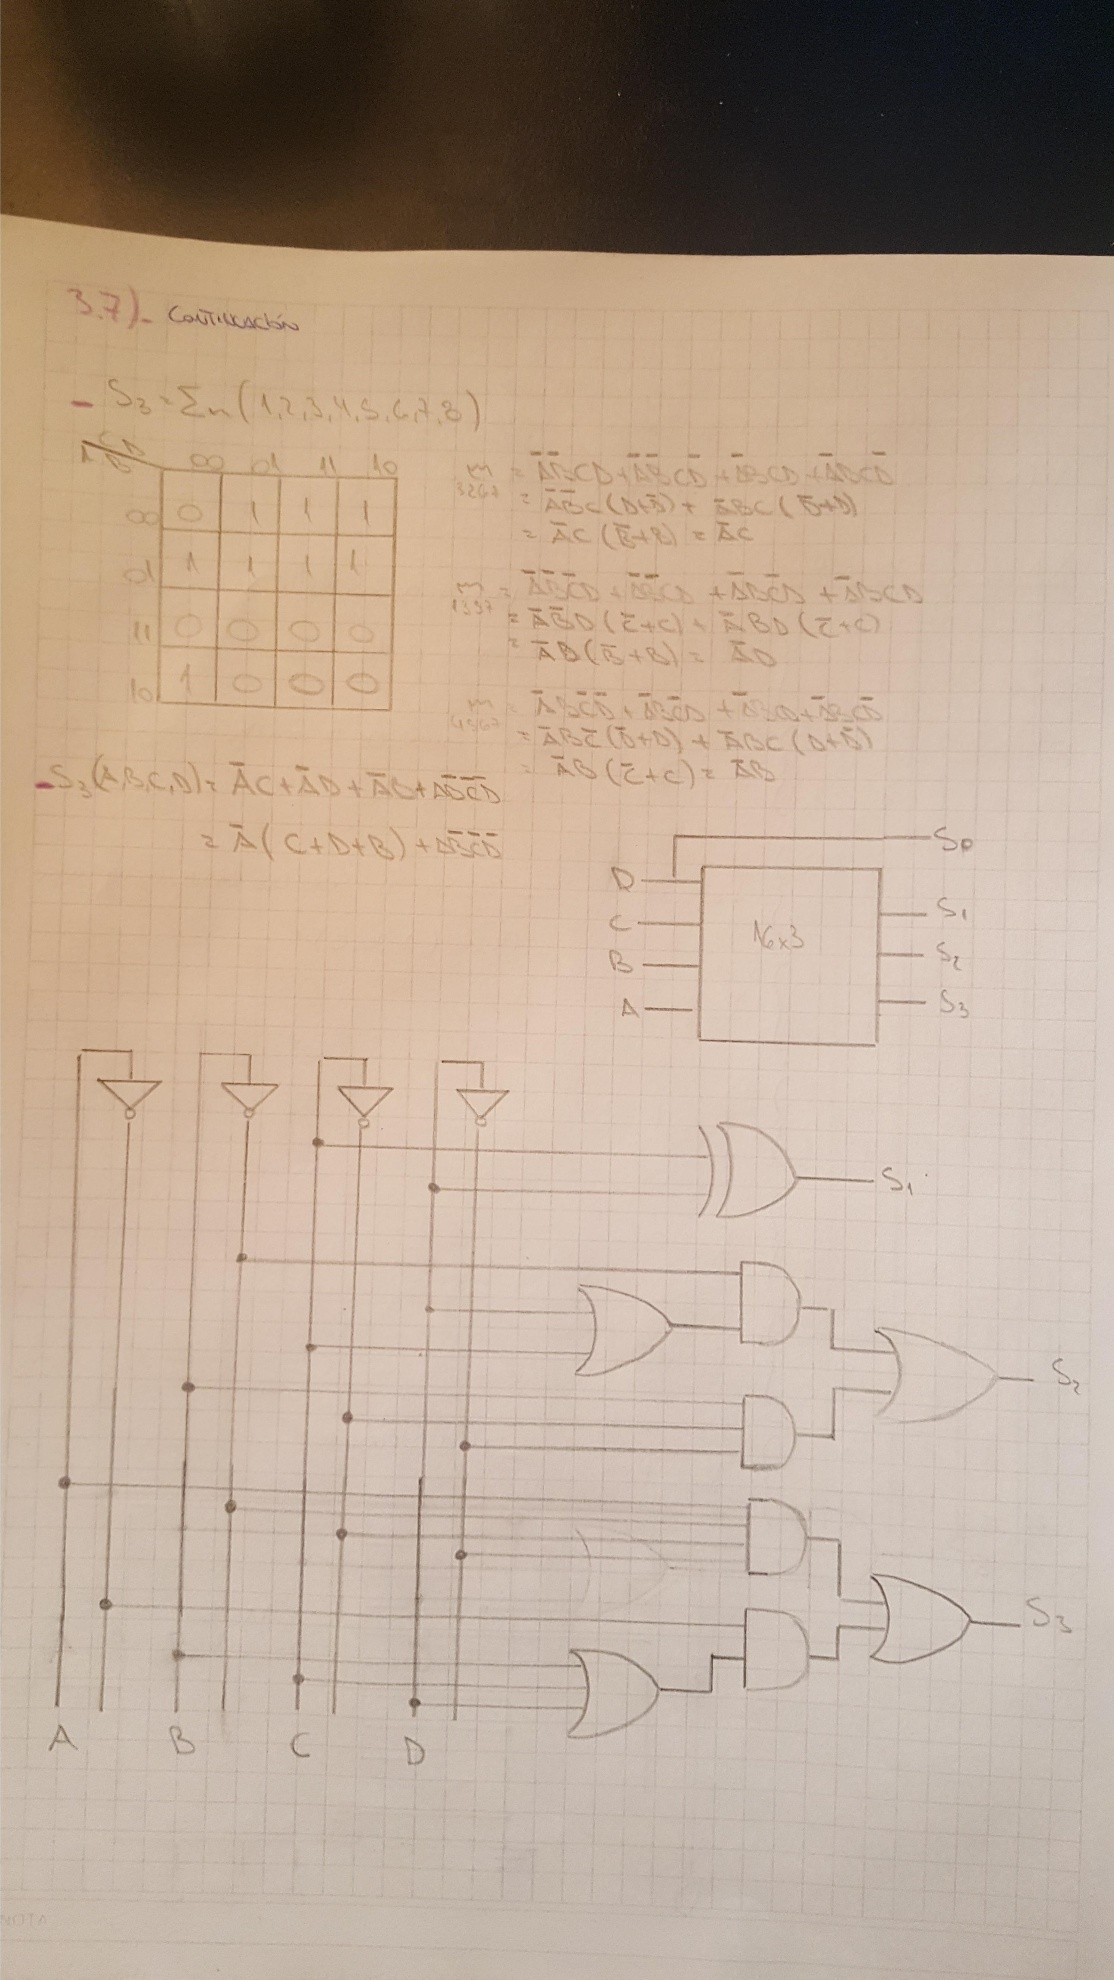 3.7)- CONTINUACIÓN
- S₃ = Σm(1,2,3,4,5,6,7,8)
CD
AB 00 01 11 10
00 0 1 1 1
01 1 1 1 1
11 0 0 0 0
10 1 0 0 0
m = A̅B̅CD + A̅B̅CD̅ + A̅BCD + A̅BCD̅
3267
= A̅B̅C(D+D̅) + A̅BC(D̅+D)
= A̅C(B̅+B) = A̅C
m = A̅B̅C̅D + A̅B̅CD + A̅BC̅D + A̅BCD
= A̅B̅D(C̅+C) + A̅BD(C̅+C)
= A̅D(B̅+B) = A̅D
m = A̅BC̅D̅ + A̅BC̅D + A̅BCD + A̅BCD̅
4567
= A̅BC̅(D̅+D) + A̅BC(D+D̅)
= A̅B(C̅+C) = A̅B
- S₃(A,B,C,D) = A̅C + A̅D + A̅B + AB̅C̅D̅
= A̅(C+D+B) + AB̅C̅D̅
S₀
D
S₁
C
16x3
S₂
B
S₃
A
S₁
S₂
S₃
A B C D
NOTA